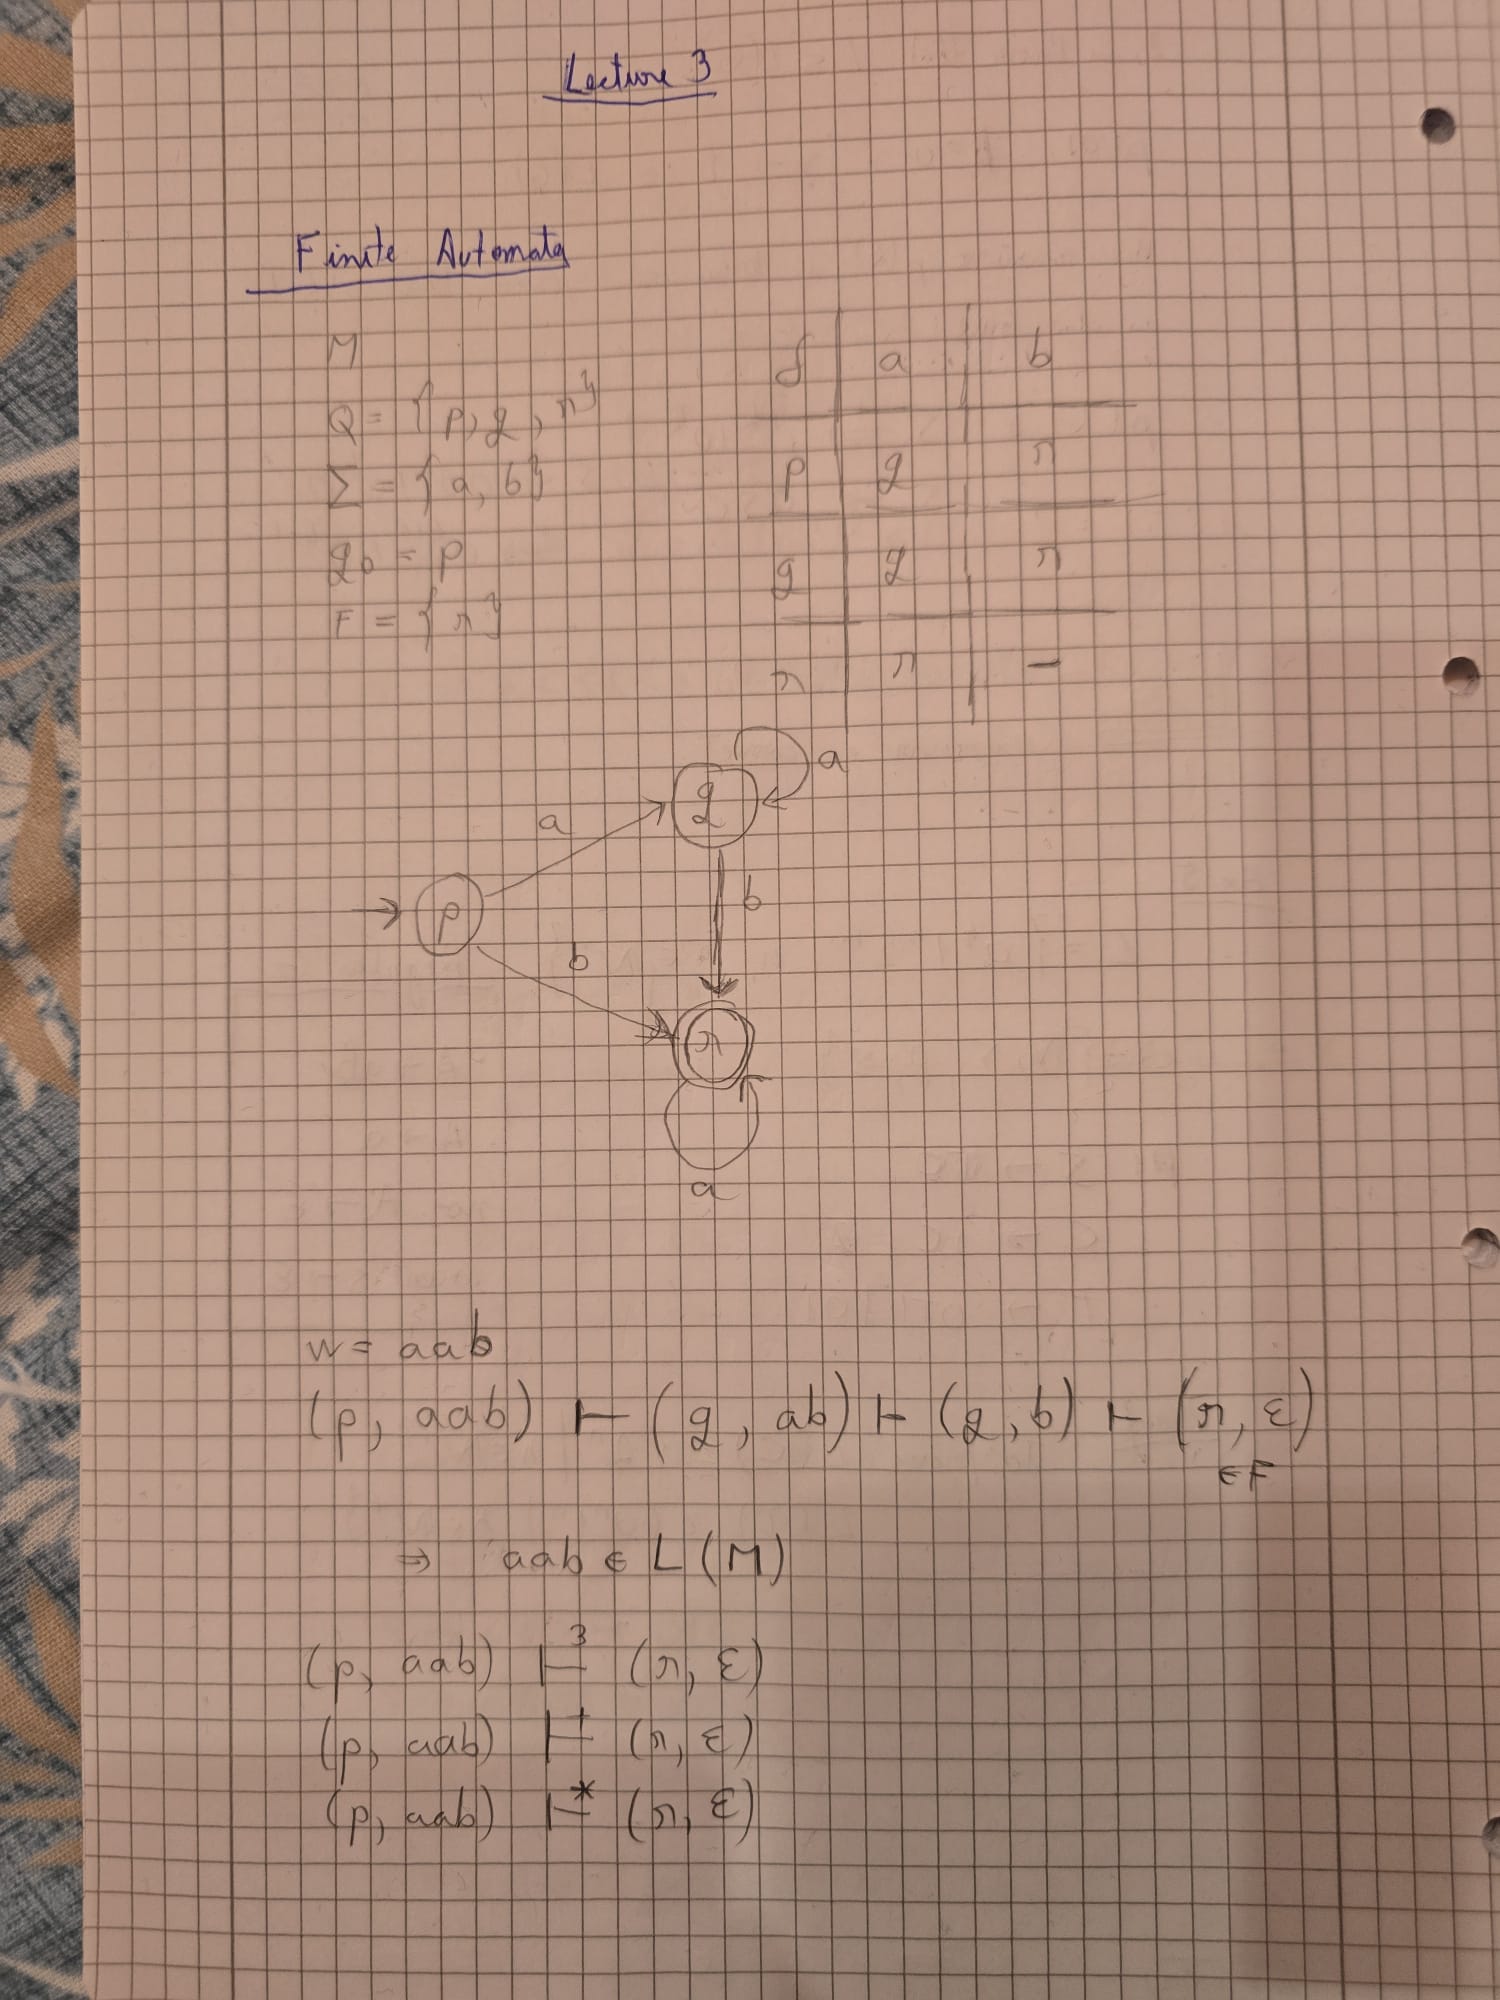 Lecture 3
Finite Automata
M
Q = {p, q, r}
Σ = {a, b}
q0 = p
F = {r}
δ a b
p q r
q q r
r r –
a
q
a
p
b
b
r
a
w = aab
(p, aab) ⊢ (q, ab) ⊢ (q, b) ⊢ (r, ε)
∈F
⇒ aab ∈ L(M)
(p, aab) ⊢³ (r, ε)
(p, aab) ⊢⁺ (r, ε)
(p, aab) ⊢* (r, ε)